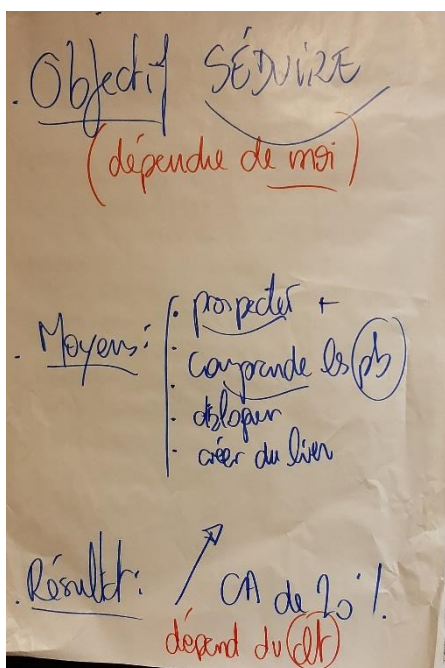 . Objectif SÉDUIRE
(dépendre de moi)
. Moyens :
. prospecter +
. comprendre les pb
. dialoguer
. créer du lien
. Résultat : ↗ CA de 20 %.
dépend du clt